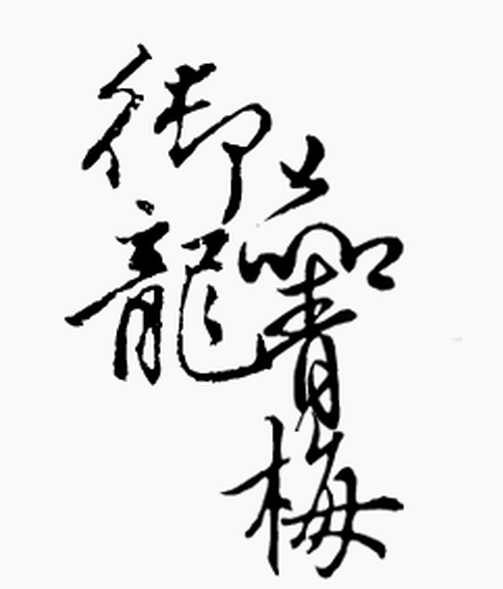 御龍
青梅